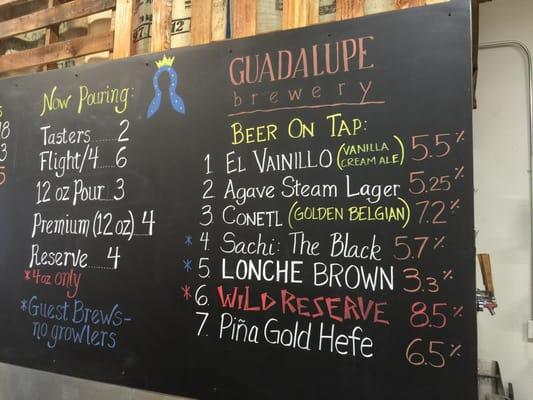 8
3
5
Now Pouring:
Tasters......2
Flight/4....6
12 oz Pour...3
Premium (12oz)..4
Reserve.......4
*4oz only
*Guest Brews-
no growlers
GUADALUPE
brewery
BEER ON TAP:
1 EL VAINILLO (VANILLA CREAM ALE) 5.5%
2 Agave Steam Lager 5.25%
3 CONETL (GOLDEN BELGIAN) 7.2%
*4 Sachi: The Black 5.7%
*5. LONCHE BROWN 3.3%
*6. WILD RESERVE 8.5%
7. Piña Gold Hefe 6.5%